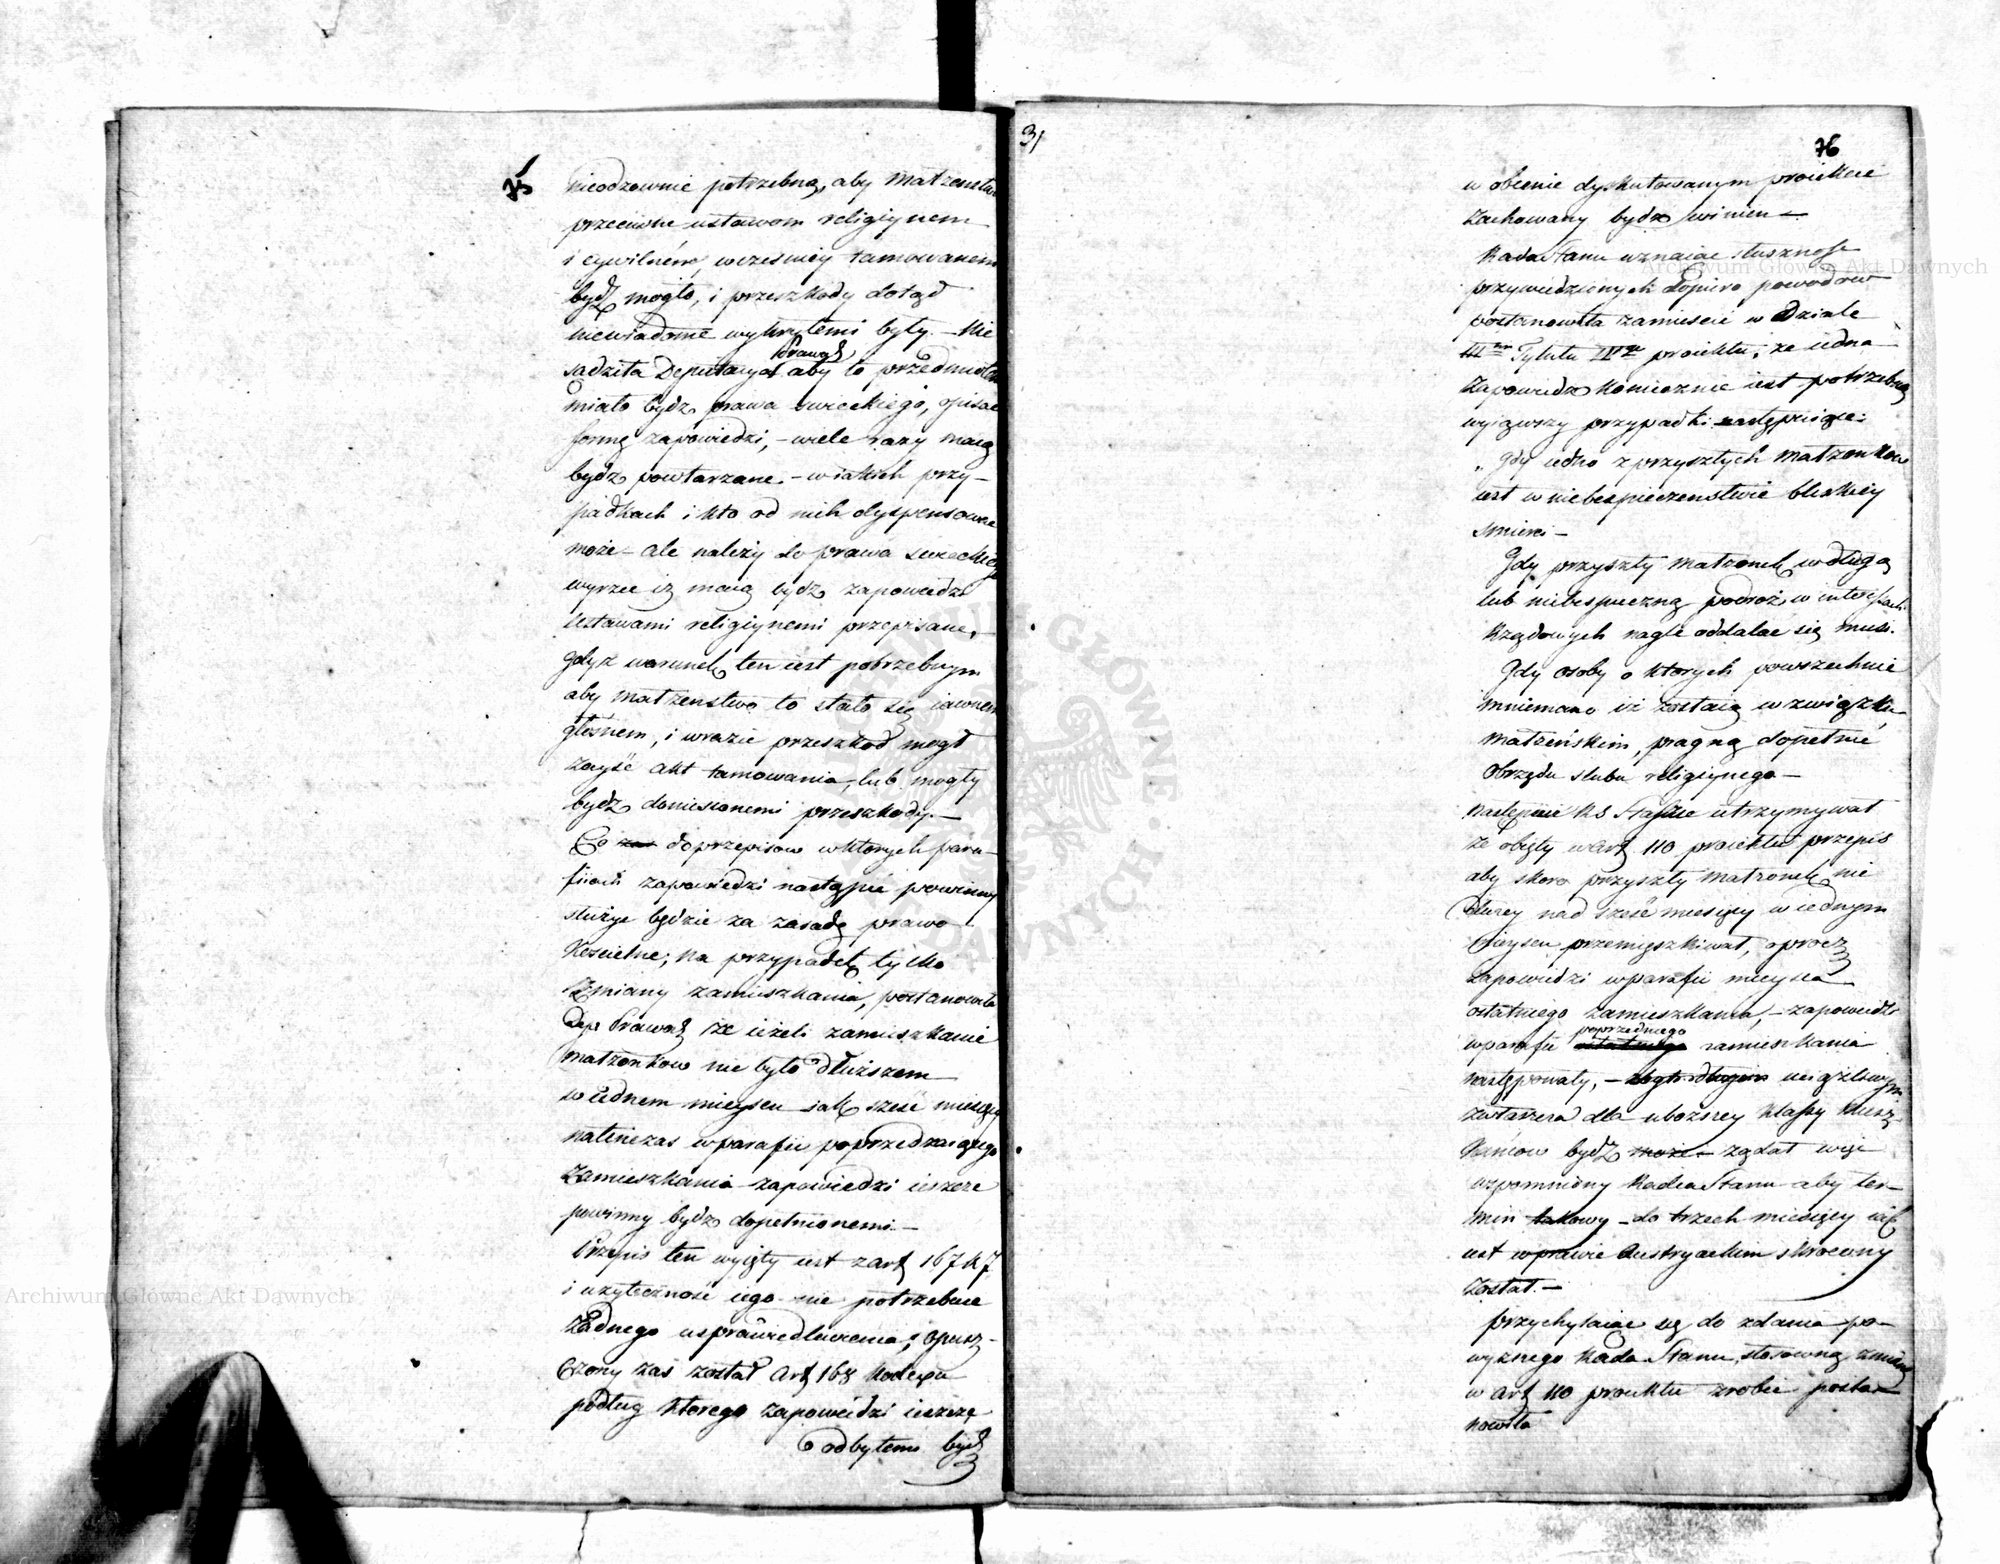 75
nieodzownie potrzebną, aby małzenstwa
przeciwne ustawom religiynem
i cywilnémi, wczesniey tamowanemi
bydź mogło, i przeszkody dotąd
niewiadome wykrytémi były. – Nie
sądziła Deputacya Prawod. aby to przedmiotem
miało bydz prawa swieckiego, opisać
formę zapowiedzi, – wiele razy maią
bydz powtarzane. – w iakich przy-
padkach i kto od nich dyspensować
może – ale należy do prawa swieckiego
wyrzec iż maią bydz zapowiedzi
ustawami religiynemi przepisane,
gdyż warunek ten iest potrzebnym
aby małżenstwo to stało się iawnem
głośnem, i w razie przeszkod mogł
zayść akt tamowania, lub mogły
bydz doniesionemi przeszkody. –
Co do przepisow w ktorych para-
fiiach zapowiedzi nastąpić powinny
służyć będzie za zasadę prawo
Kościelne; na przypadek tylko
Zmiany zamieszkania, postanowiła
Dep. Prawod. że ieżeli zamieszkanie
małżonkow nie było dłuższem
w iednem mieyscu iak sześć miesięcy
natenczas w parafii poprzedzaiącego
Zamieszkania zapowiedzi ieszcze
powinny bydz dopełnionemi. –
Przepis ten wyięty iest z art 167 K 7
i użyteczność iego nie potrzebuie
żadnego usprawiedliwienia; opusz-
czony zaś został Art 168 Kodexu
podług ktorego zapowiedzi ieszcze
odbytemi bydź
31
76
w obecnie dyskutowanym proiekcie
Zachowany bydz winien –
Rada Stanu uznaiąc słuszność
przywiedzionych dopiero powodow
postanowiła zamieścić w Dziale
III Tytułu proiektu; że iedna
Zapowiedz koniecznie iest potrzebną
wyiąwszy przypadki następuiące:
„ Gdy iedno z przyszłych małżonkow
iest w niebezpieczenstwie bliskiey
śmierci –
Gdy przyszły małżonek w długą
lub niebezpieczną podroż w interessach
Rządowych nagle oddalać się musi.
Gdy osoby o ktorych powszechnie
mniemano iż zostaią w związku
małżeńskim, pragną dopełnić
Obrzędu slubu religiynego –
następnie KS Staszic utrzymywał
że obięty w art 110 proiektu przepis
aby skoro przyszły małżonek nie
dłużey nad sześć miesięcy w iednym
mieyscu przemięszkiwał, oprocz
zapowiedzi w parafii mieysca
ostatniego zamieszkania, – zapowiedzi
w parafii poprzedniego zamieszkania
następowały, – uciążliwym
zwłaszcza dla uboższey klassy miesz-
kańcow bydz może – żądał więc
wspomniony Radca Stanu aby ter-
min takowy – do trzech miesięcy iak
iest w prawie Austryackim skrocony
został. –
przychylaiąc się do zdania po-
wyższego Rada Stanu, stosowną zmianę
w Art 110 proiektu zrobić posta-
nowiła
Archiwum Główne Akt Dawnych
Archiwum Główne Akt Dawnych
ARCHIWUM GŁÓWNE AKT DAWNYCH